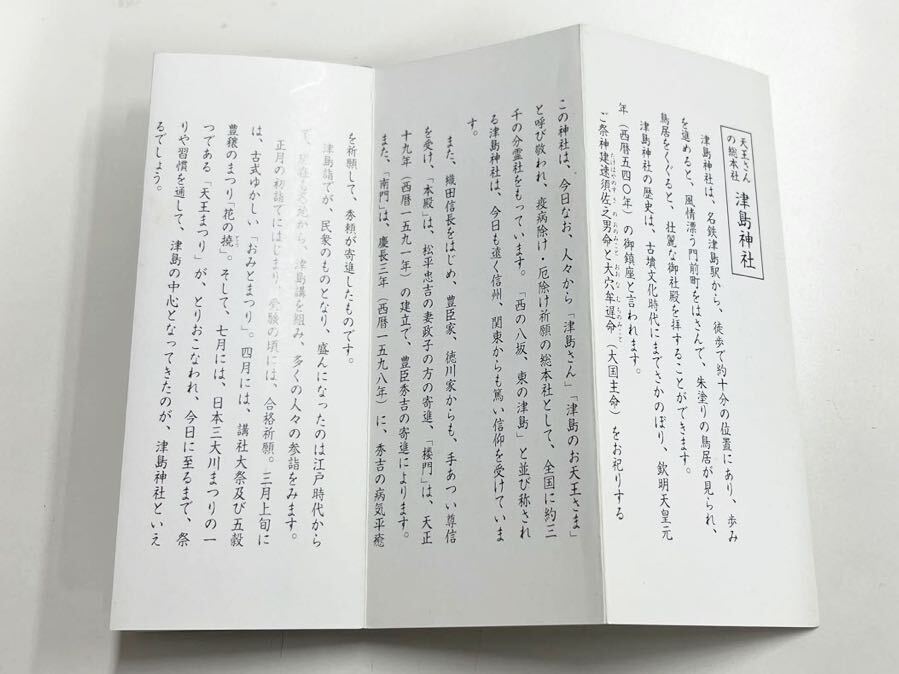 天王さん
の総本社
津島神社
津島神社は、名鉄津島駅から、徒歩で約十分の位置にあり、歩み
を進めると、風情漂う門前町をはさんで、朱塗りの鳥居が見られ、
鳥居をくぐると、壮麗な御社殿を拝することができます。
津島神社の歴史は、古墳文化時代にまでさかのぼり、欽明天皇元
年（西暦五四〇年）の御鎮座と言われます。
ご祭神建速須佐之男命と大穴牟遅命（大国主命）をお祀りする
この神社は、今日なお、人々から「津島さん」「津島のお天王さま」
と呼び敬われ、疫病除け・厄除け祈願の総本社として、全国に約三
千の分霊社をもっています。「西の八坂、東の津島」と並び称され
る津島神社は、今日も遠く信州、関東からも篤い信仰を受けていま
す。
また、織田信長をはじめ、豊臣家、徳川家からも、手あつい尊信
を受け、「本殿」は、松平忠吉の妻政子の方の寄進、「楼門」は、天正
十九年（西暦一五九一年）の建立で、豊臣秀吉の寄進によります。
また、「南門」は、慶長三年（西暦一五九八年）に、秀吉の病気平癒
を祈願して、秀頼が寄進したものです。
津島詣でが、民衆のものとなり、盛んになったのは江戸時代から
で、から、津島講を組み、多くの人々の参詣をみます。
正月の初詣でにはじまり、受験の頃には、合格祈願。三月上旬に
は、古式ゆかしい「おみとまつり」。四月には、講社大祭及び五穀
豊穣のまつり「花の撓」。そして、七月には、日本三大川まつりの一
つである「天王まつり」が、とりおこなわれ、今日に至るまで、祭
りや習慣を通して、津島の中心となってきたのが、津島神社といえ
るでしょう。